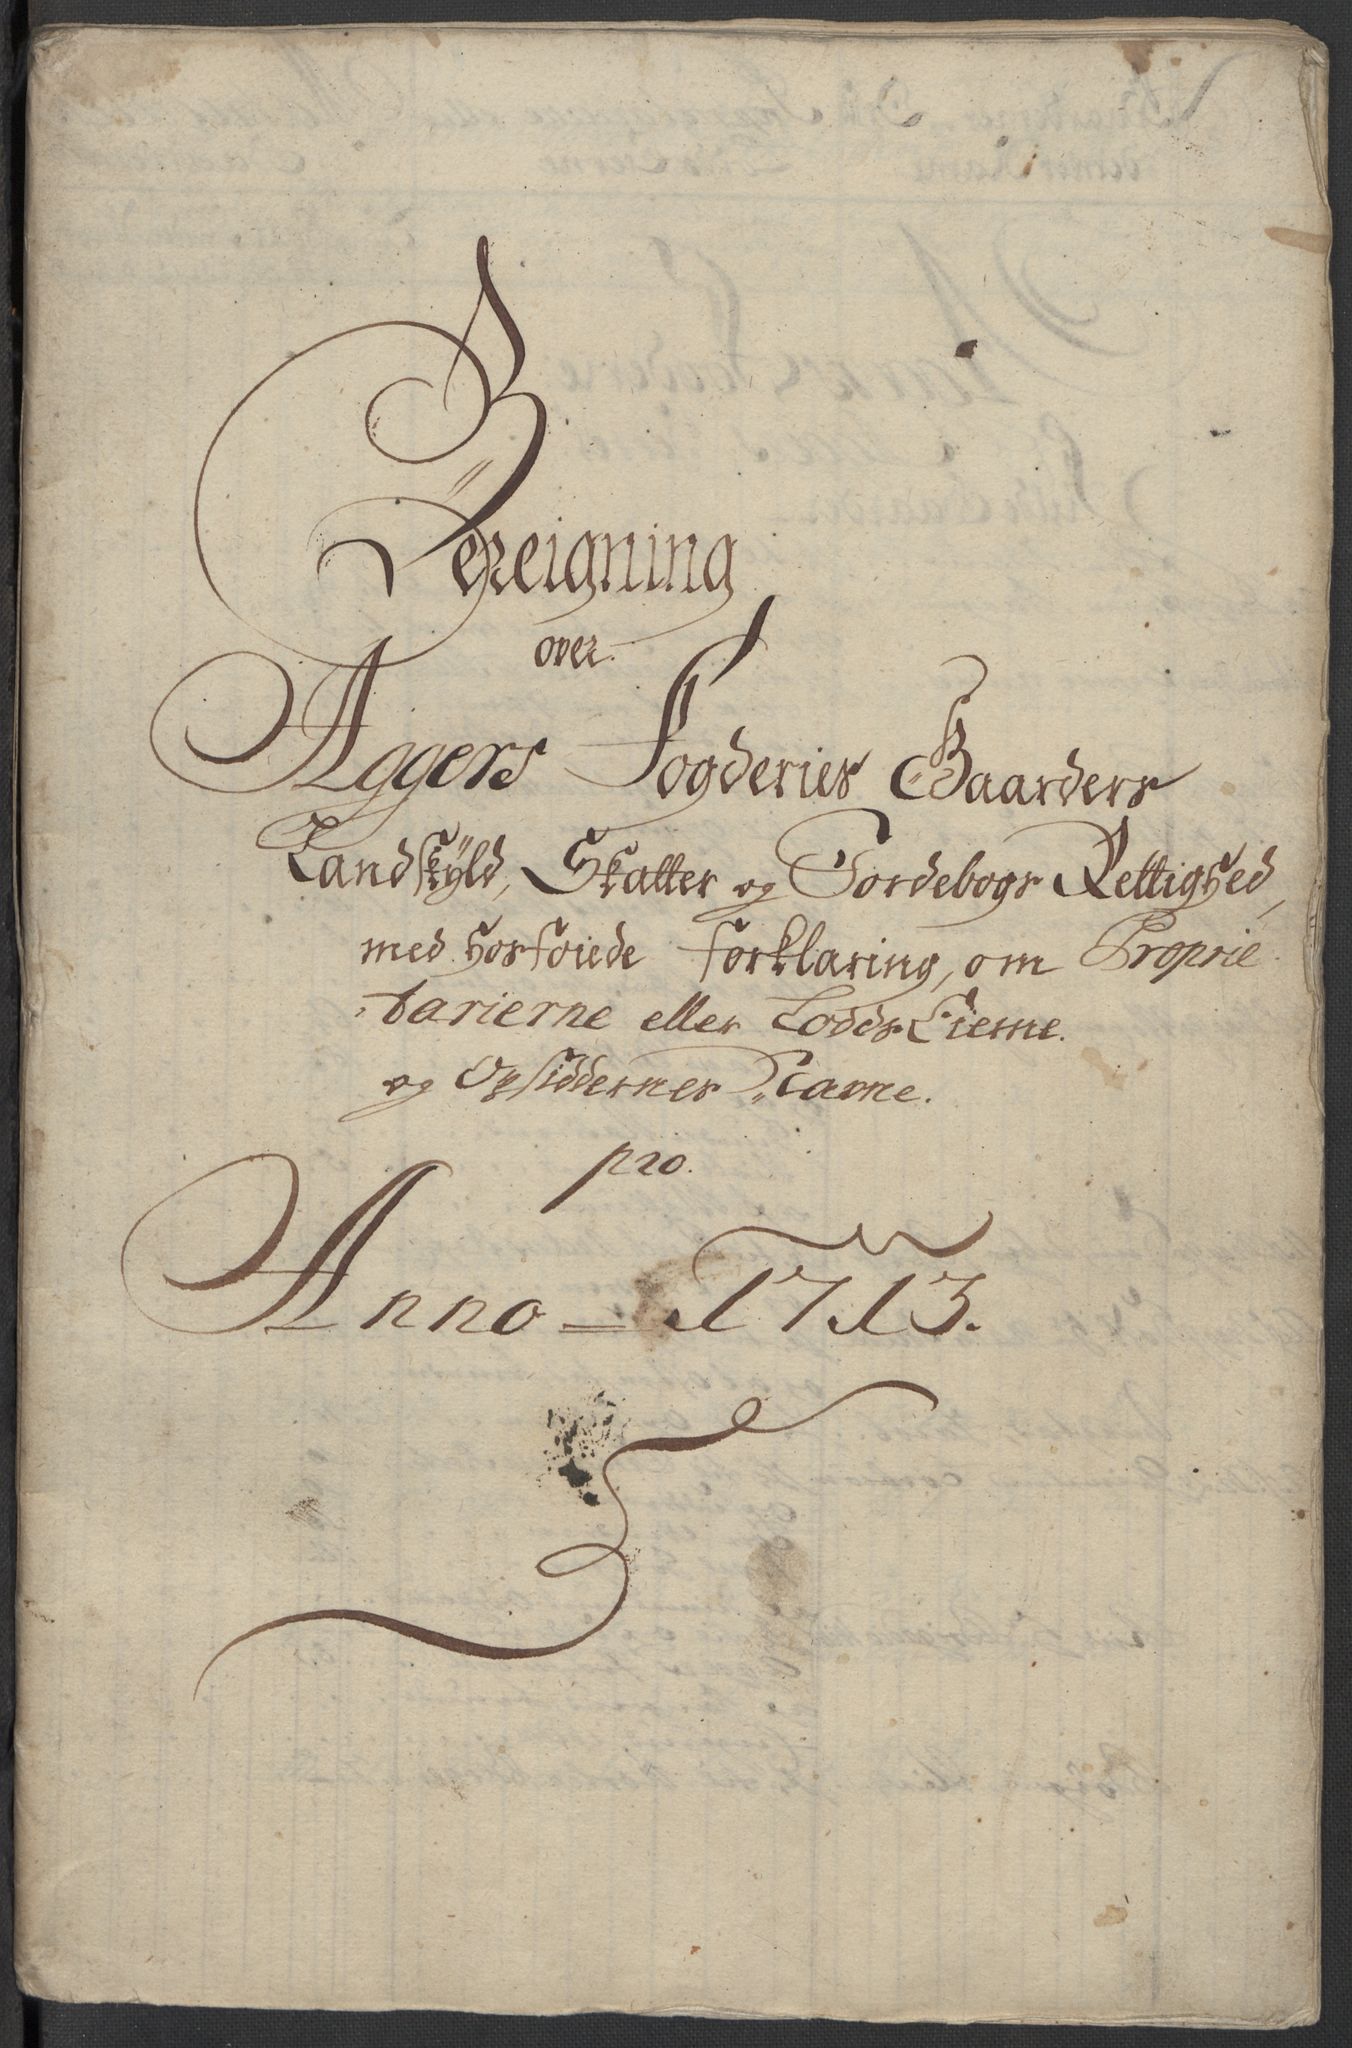 Bereigning
over
Aggers Fogderies Gaarders
Landskyld, Skatter og Jordebogs Rettighed,
med hosføiede Forklaring, om Proprie-
tarierne eller LodsEierne.
og Opsiddernes Navne.
pro.
Anno 1713.